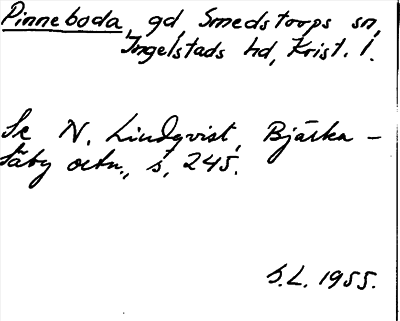 Pinneboda, gd, Smedstorps sn,
Ingelstads hd, Krist. l.
Se N. Lindqvist, Bjärka-
Säby ortn., s. 245.
S.L. 1955.